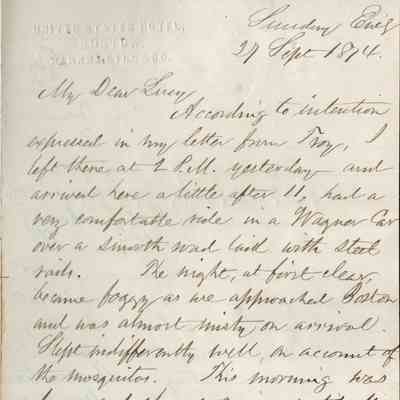 UNITED STATES HOTEL,
BOSTON,
Sunday Eve'g
27 Sept 1874.
My Dear Lucy
According to intention
expressed in my letter from Troy, I
left there at 2 P.M. yesterday and
arrived here a little after 11, had a
very comfortable ride in a Wagner Car
over a smooth road laid with steel
rails. The night, at first clear,
became foggy as we approached Boston
and was almost misty on arrival.
Slept indifferently well, on account of
the mosquitos. This morning was